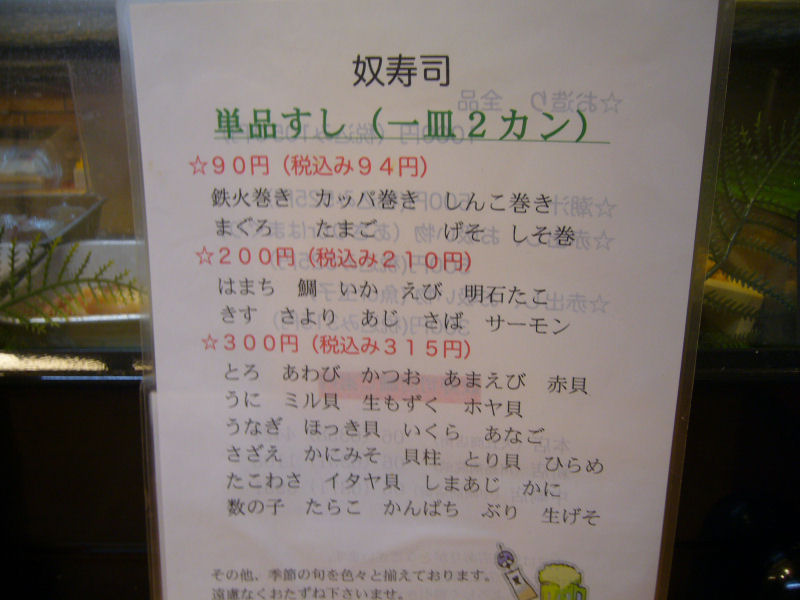 奴寿司
単品すし（一皿２カン）
☆９０円（税込み９４円）
鉄火巻き　カッパ巻き　しんこ巻き
まぐろ　たまご　げそ　しそ巻
☆２００円（税込み２１０円）
はまち　鯛　いか　えび　明石たこ
きす　さより　あじ　さば　サーモン
☆３００円（税込み３１５円）
とろ　あわび　かつお　あまえび　赤貝
うに　ミル貝　生もずく　ホヤ貝
うなぎ　ほっき貝　いくら　あなご
さざえ　かにみそ　貝柱　とり貝　ひらめ
たこわさ　イタヤ貝　しまあじ　かに
数の子　たらこ　かんぱち　ぶり　生げそ
その他、季節の旬を色々と揃えております。
遠慮なくおたずね下さいませ。